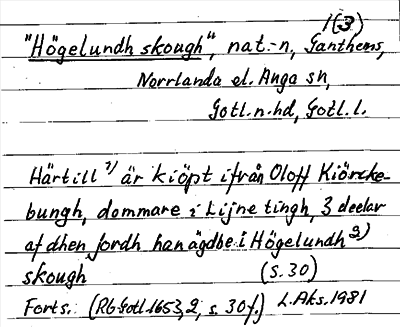 1(3)
"Högelundh skough", nat.-n, Ganthems,
Norrlanda el. Anga sn,
Gotl.n.hd, Gotl.l.
Härtill 1) är kiöpt ifrån Oloff Kiörcke-
bungh, dommare i Lijne tingh, 3 deelar
af dhen jordh han ägdbe i Högelundh 2)
skough (s.30)
Forts. (RG Gotl 1653, 2, s. 30f.) L.Aks. 1981